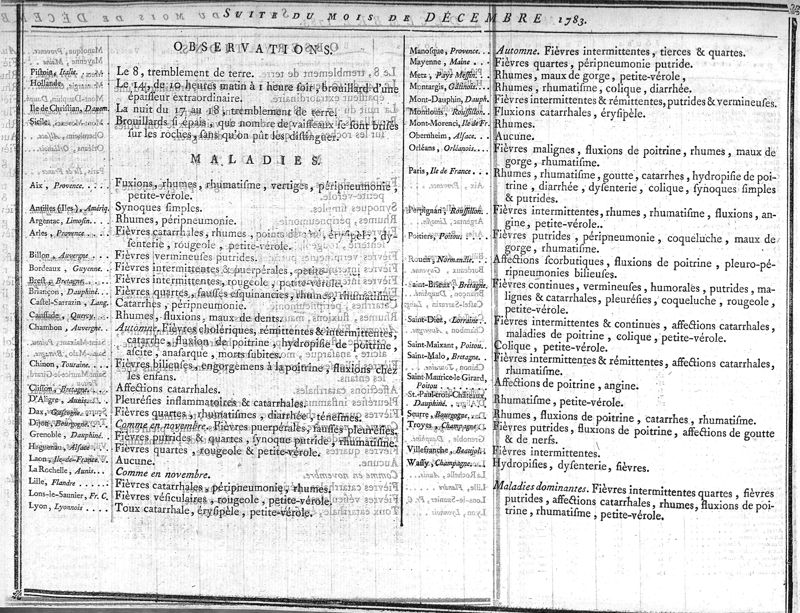 SUITE DU MOIS DE DÉCEMBRE 1783.
OBSERVATIONS.
Pistoia, Italie. Le 8, tremblement de terre.
Hollande. Le 14, de 10 heures matin à 1 heure soir, brouillard d'une
épaisseur extraordinaire.
Ile de Christian, Danem. La nuit du 17 au 18, tremblement de terre.
Sicile. Brouillards si épais, que nombre de vaisseaux se sont brisés
sur les roches, sans qu'on pût les distinguer.
MALADIES.
Aix, Provence. Fuxions, rhumes, rhumatisme, vertiges, péripneumonie,
petite-vérole.
Antilles (Iles), Amériq. Synoques simples.
Argentac, Limosin. Rhumes, péripneumonie.
Arles, Provence. Fièvres catarrhales, rhumes, points de côté, érysipèle, dy-
senterie, rougeole, petite-vérole.
Billon, Auvergne. Fièvres vermineuses putrides.
Bordeaux, Guyenne. Fièvres intermittentes & puerpérales, petite-vérole.
Brest, Bretagne. Fièvres intermittentes, rougeole, petite-vérole.
Briançon, Dauphiné. Fièvres quartes, fausses esquinancies, rhumes, rhumatisme.
Castel-Sarrazin, Lang. Catarrhes, péripneumonie.
Caussade, Quercy. Rhumes, fluxions, maux de dents.
Chambon, Auvergne. Automne. Fièvres cholériques, rémittentes & intermittentes,
catarrhe, fluxion de poitrine, hydropisie de poitrine,
ascite, anasarque, morts subites.
Chinon, Touraine. Fièvres bilieuses, engorgemens à la poitrine, fluxions chez
les enfans.
Clisson, Bretagne. Affections catarrhales.
D'Aligre, Aunis. Pleurésies inflammatoires & catarrhales.
Dax, Gascogne. Fièvres quartes, rhumatismes, diarrhée, ténesmes.
Dijon, Bourgogne. Comme en novembre. Fièvres puerpérales, fausses pleurésies.
Grenoble, Dauphiné. Fièvres putrides & quartes, synoque putride, rhumatisme.
Haguenau, Alsace. Fièvres quartes, rougeole & petite-vérole.
Laon, Ile-de-France. Aucune.
La Rochelle, Aunis. Comme en novembre.
Lille, Flandre. Fièvres catarrhales, péripneumonie, rhumes.
Lons-le-Saunier, Fr. C. Fièvres vésiculaires, rougeole, petite-vérole.
Lyon, Lyonnois. Toux catarrhale, érysipèle, petite-vérole.
Manosque, Provence. Automne. Fièvres intermittentes, tierces & quartes.
Mayenne, Maine. Fièvres quartes, péripneumonie putride.
Metz, Pays Messin. Rhumes, maux de gorge, petite-vérole,
Montargis, Gâtinois. Rhumes, rhumatisme, colique, diarrhée.
Mont-Dauphin, Dauph. Fièvres intermittentes & rémittentes, putrides & vermineuses.
Montlouis, Roussillon. Fluxions catarrhales, érysipèle.
Mont-Morenci, Ile de Fr. Rhumes.
Obernheim, Alsace. Aucune.
Orléans, Orléanois. Fièvres malignes, fluxions de poitrine, rhumes, maux de
gorge, rhumatisme.
Paris, Ile de France. Rhumes, rhumatisme, goutte, catarrhes, hydropisie de poi-
trine, diarrhée, dysenterie, colique, synoques simples
& putrides.
Perpignan, Roussillon. Fièvres intermittentes, rhumes, rhumatisme, fluxions, an-
gine, petite-vérole.
Poitiers, Poitou. Fièvres putrides, péripneumonie, coqueluche, maux de
gorge, rhumatisme.
Rouen, Normandie. Affections scorbutiques, fluxions de poitrine, pleuro-pé-
ripneumonies bilieuses.
Saint-Brieux, Bretagne. Fièvres continues, vermineuses, humorales, putrides, ma-
lignes & catarrhales, pleurésies, coqueluche, rougeole,
petite-vérole.
Saint-Diez, Lorraine. Fièvres intermittentes & continues, affections catarrhales,
maladies de poitrine, colique, petite-vérole.
Saint-Maixant, Poitou. Colique, petite-vérole.
Saint-Malo, Bretagne. Fièvres intermittentes & rémittentes, affections catarrhales,
rhumatisme.
Saint-Maurice-le-Girard,
Poitou. Affections de poitrine, angine.
St.-Paul-trois-Châteaux,
Dauphiné. Rhumatisme, petite-vérole.
Seurre, Bourgogne. Rhumes, fluxions de poitrine, catarrhes, rhumatisme.
Troyes, Champagne. Fièvres putrides, fluxions de poitrine, affections de goutte
& de nerfs.
Villefranche, Beaujol. Fièvres intermittentes.
Wassy, Champagne. Hydropisies, dysenterie, fièvres.
Maladies dominantes. Fièvres intermittentes quartes, fièvres
putrides, affections catarrhales, rhumes, fluxions de poi-
trine, rhumatisme, petite-vérole.